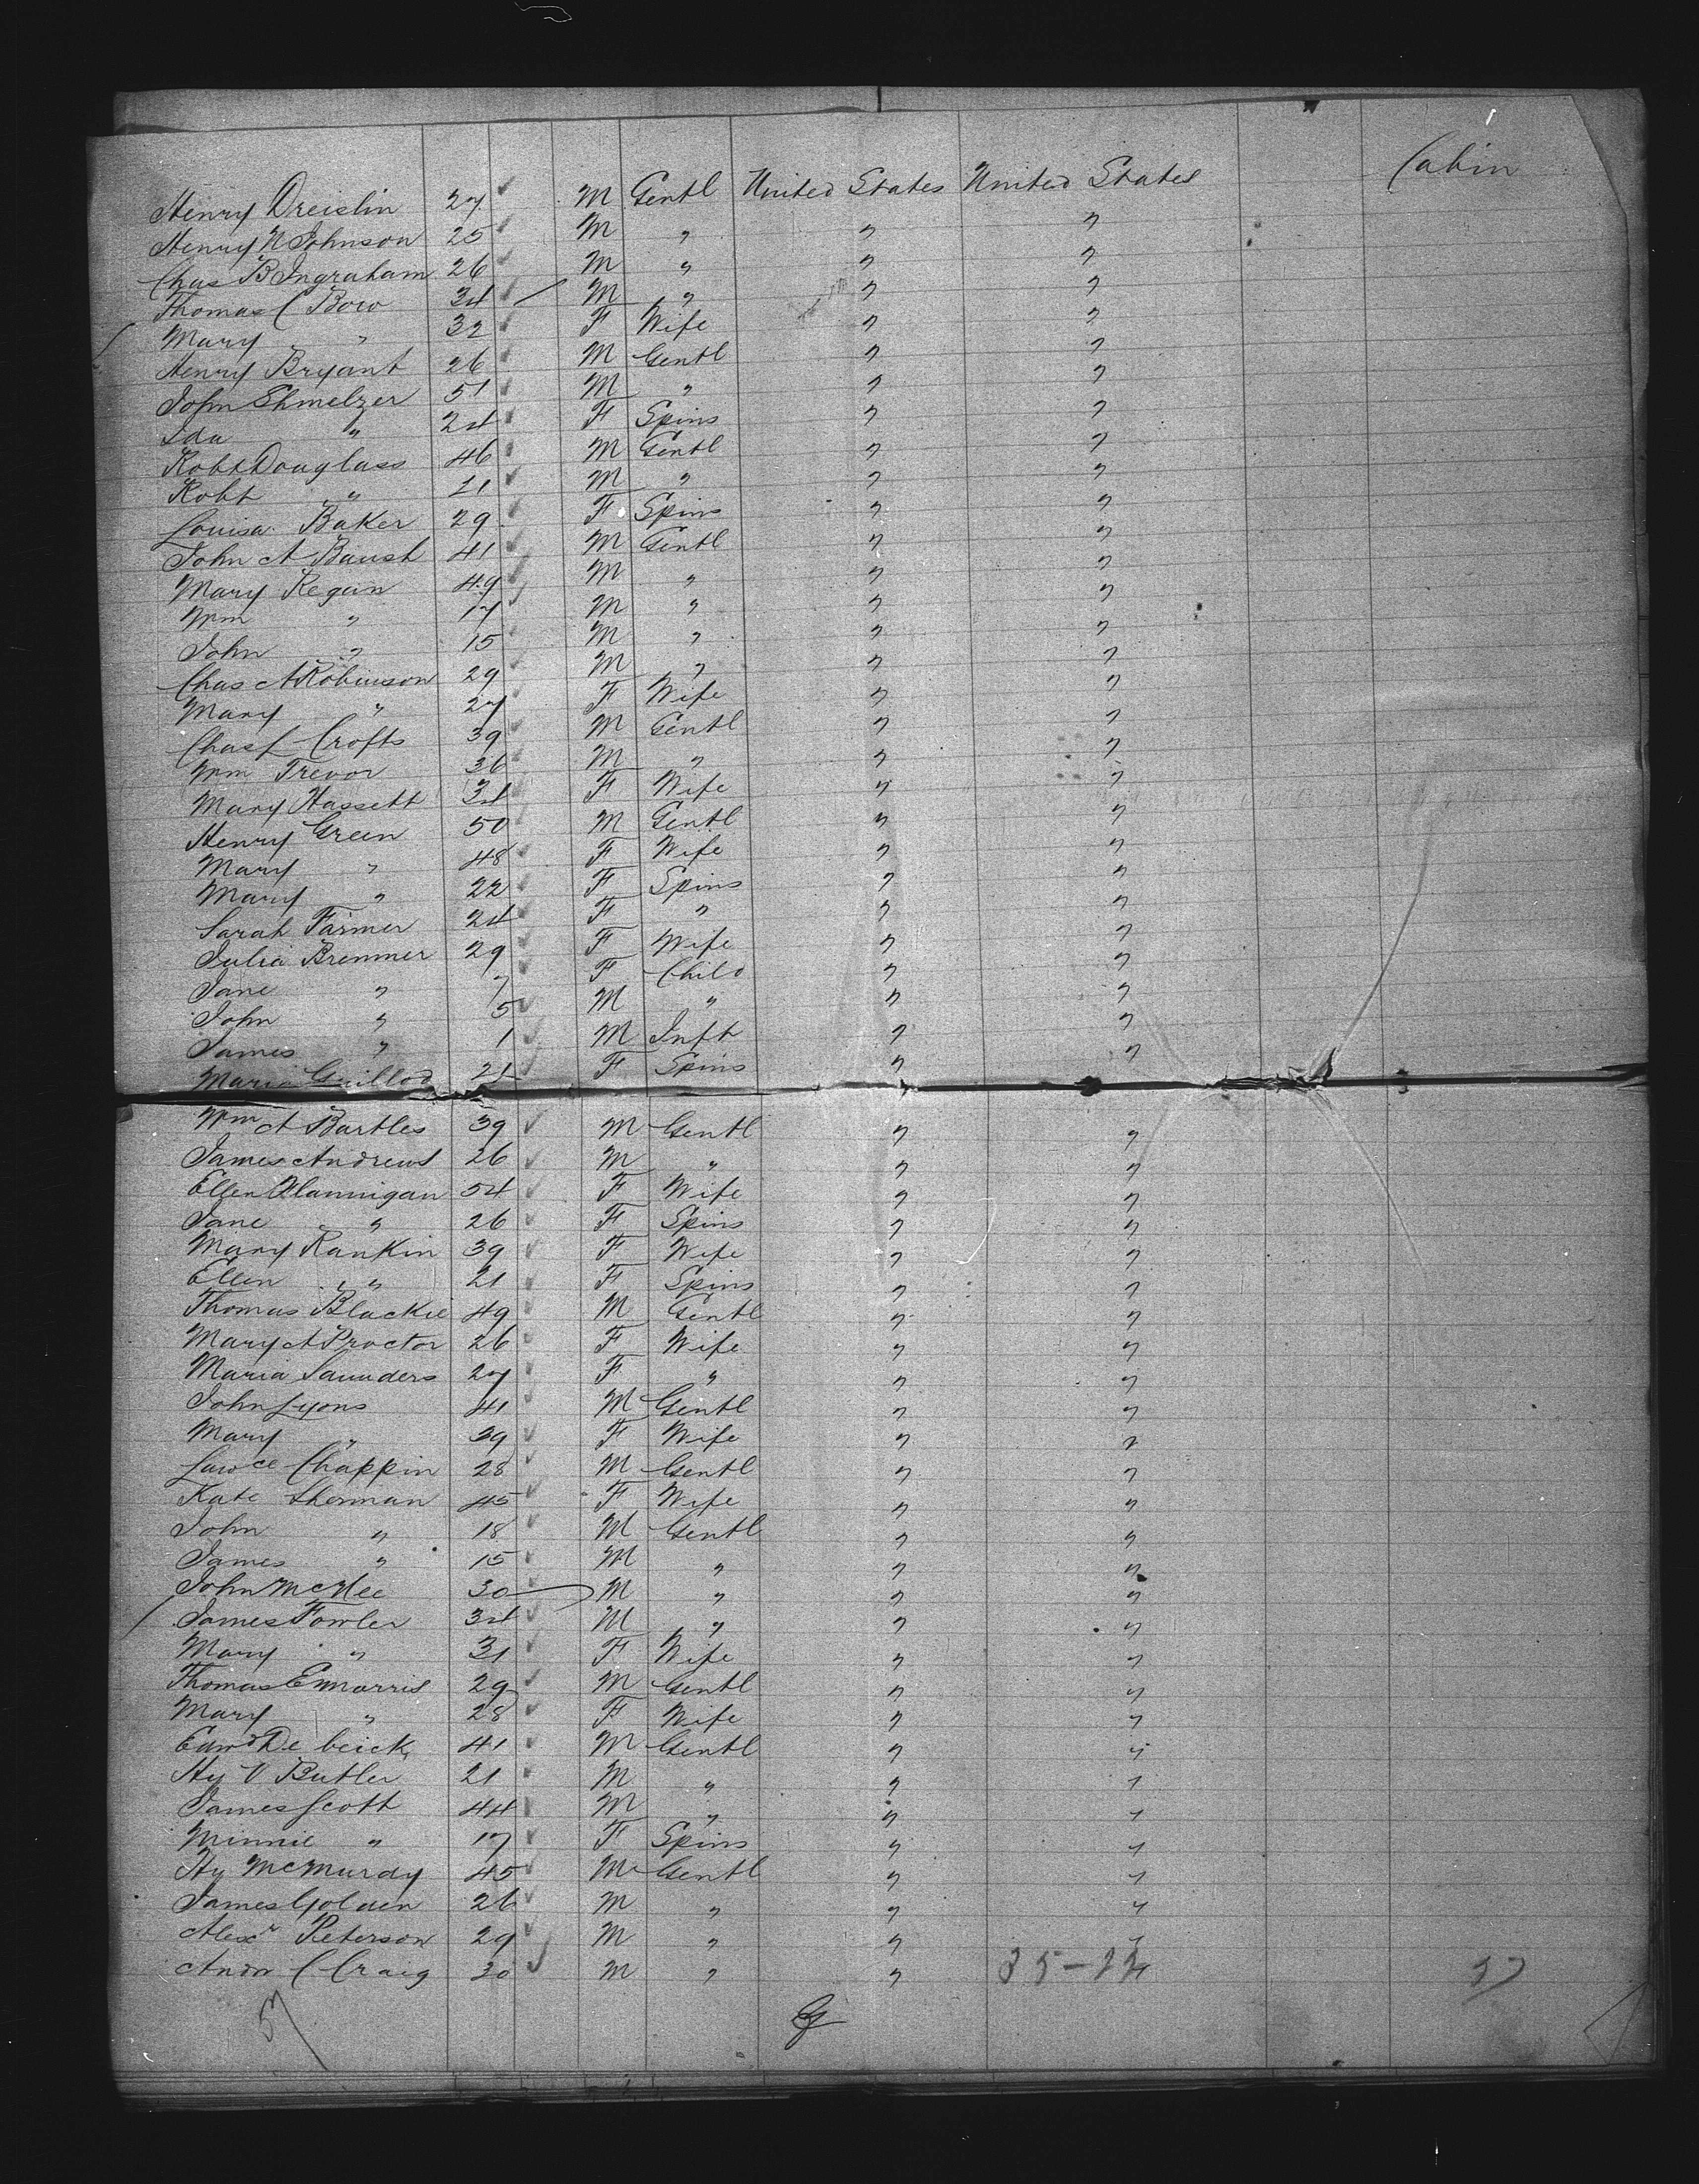 Cabin
Henry Dreislin 27 M Gentl United States United States
Henry N Johnson 25 M " " "
Chas B Ingraham 26 M " " "
Thomas C Bow 34 M " " "
Mary " 32 F Wife " "
Henry Bryant 26 M Gentl " "
John Shmelzer 51 M " " "
Ida " 24 F Spins " "
Robt Douglass 46 M Gentl " "
Robt " 21 M " " "
Louisa Baker 29 F Spins " "
John A Baush 41 M Gentl " "
Mary Regan 49 M " " "
Wm " 17 M " " "
John " 15 M " " "
Chas A Robinson 29 M " " "
Mary " 27 F Wife " "
Chas f Crofts 39 M Gentl " "
Wm Trevor 36 M " " "
Mary Hassett 34 F Wife " "
Henry Green 50 M Gentl " "
Mary " 48 F Wife " "
Mary " 22 F Spins " "
Sarah Farmer 24 F " " "
Julia Bremner 29 F Wife " "
Jane " 7 F Child " "
John " 5 M " " "
James " 1 M Inft " "
Maria Guillod 21 F Spins " "
Wm A Bartles 39 M Gentl " "
James Andrews 26 M " " "
Ellen Flannigan 54 F Wife " "
Jane " 26 F Spins " "
Mary Rankin 39 F Wife " "
Ellen " 21 F Spins " "
Thomas Blackie 49 M Gentl " "
Mary A Proctor 26 F Wife " "
Maria Saunders 27 F " " "
John Lyons 41 M Gentl " "
Mary " 39 F Wife " "
Lawce Chappin 28 M Gentl " "
Kate Sherman 45 F Wife " "
John " 18 M Gentl " "
James " 15 M " " "
John McNee 30 M " " "
James Fowler 34 M " " "
Mary " 31 F Wife " "
Thomas E Morris 29 M Gentl " "
Mary " 28 F Wife " "
Edwd De beick 41 M Gentl " "
Hy V Butler 21 M " " "
James Scott 44 M " " "
Minnie " 17 F Spins " "
Hy McMurdy 45 M Gentl " "
James Golden 26 M " " "
Alexr Peterson 29 M " " "
Andw C Craig 30 M " " " 35-22 57
57